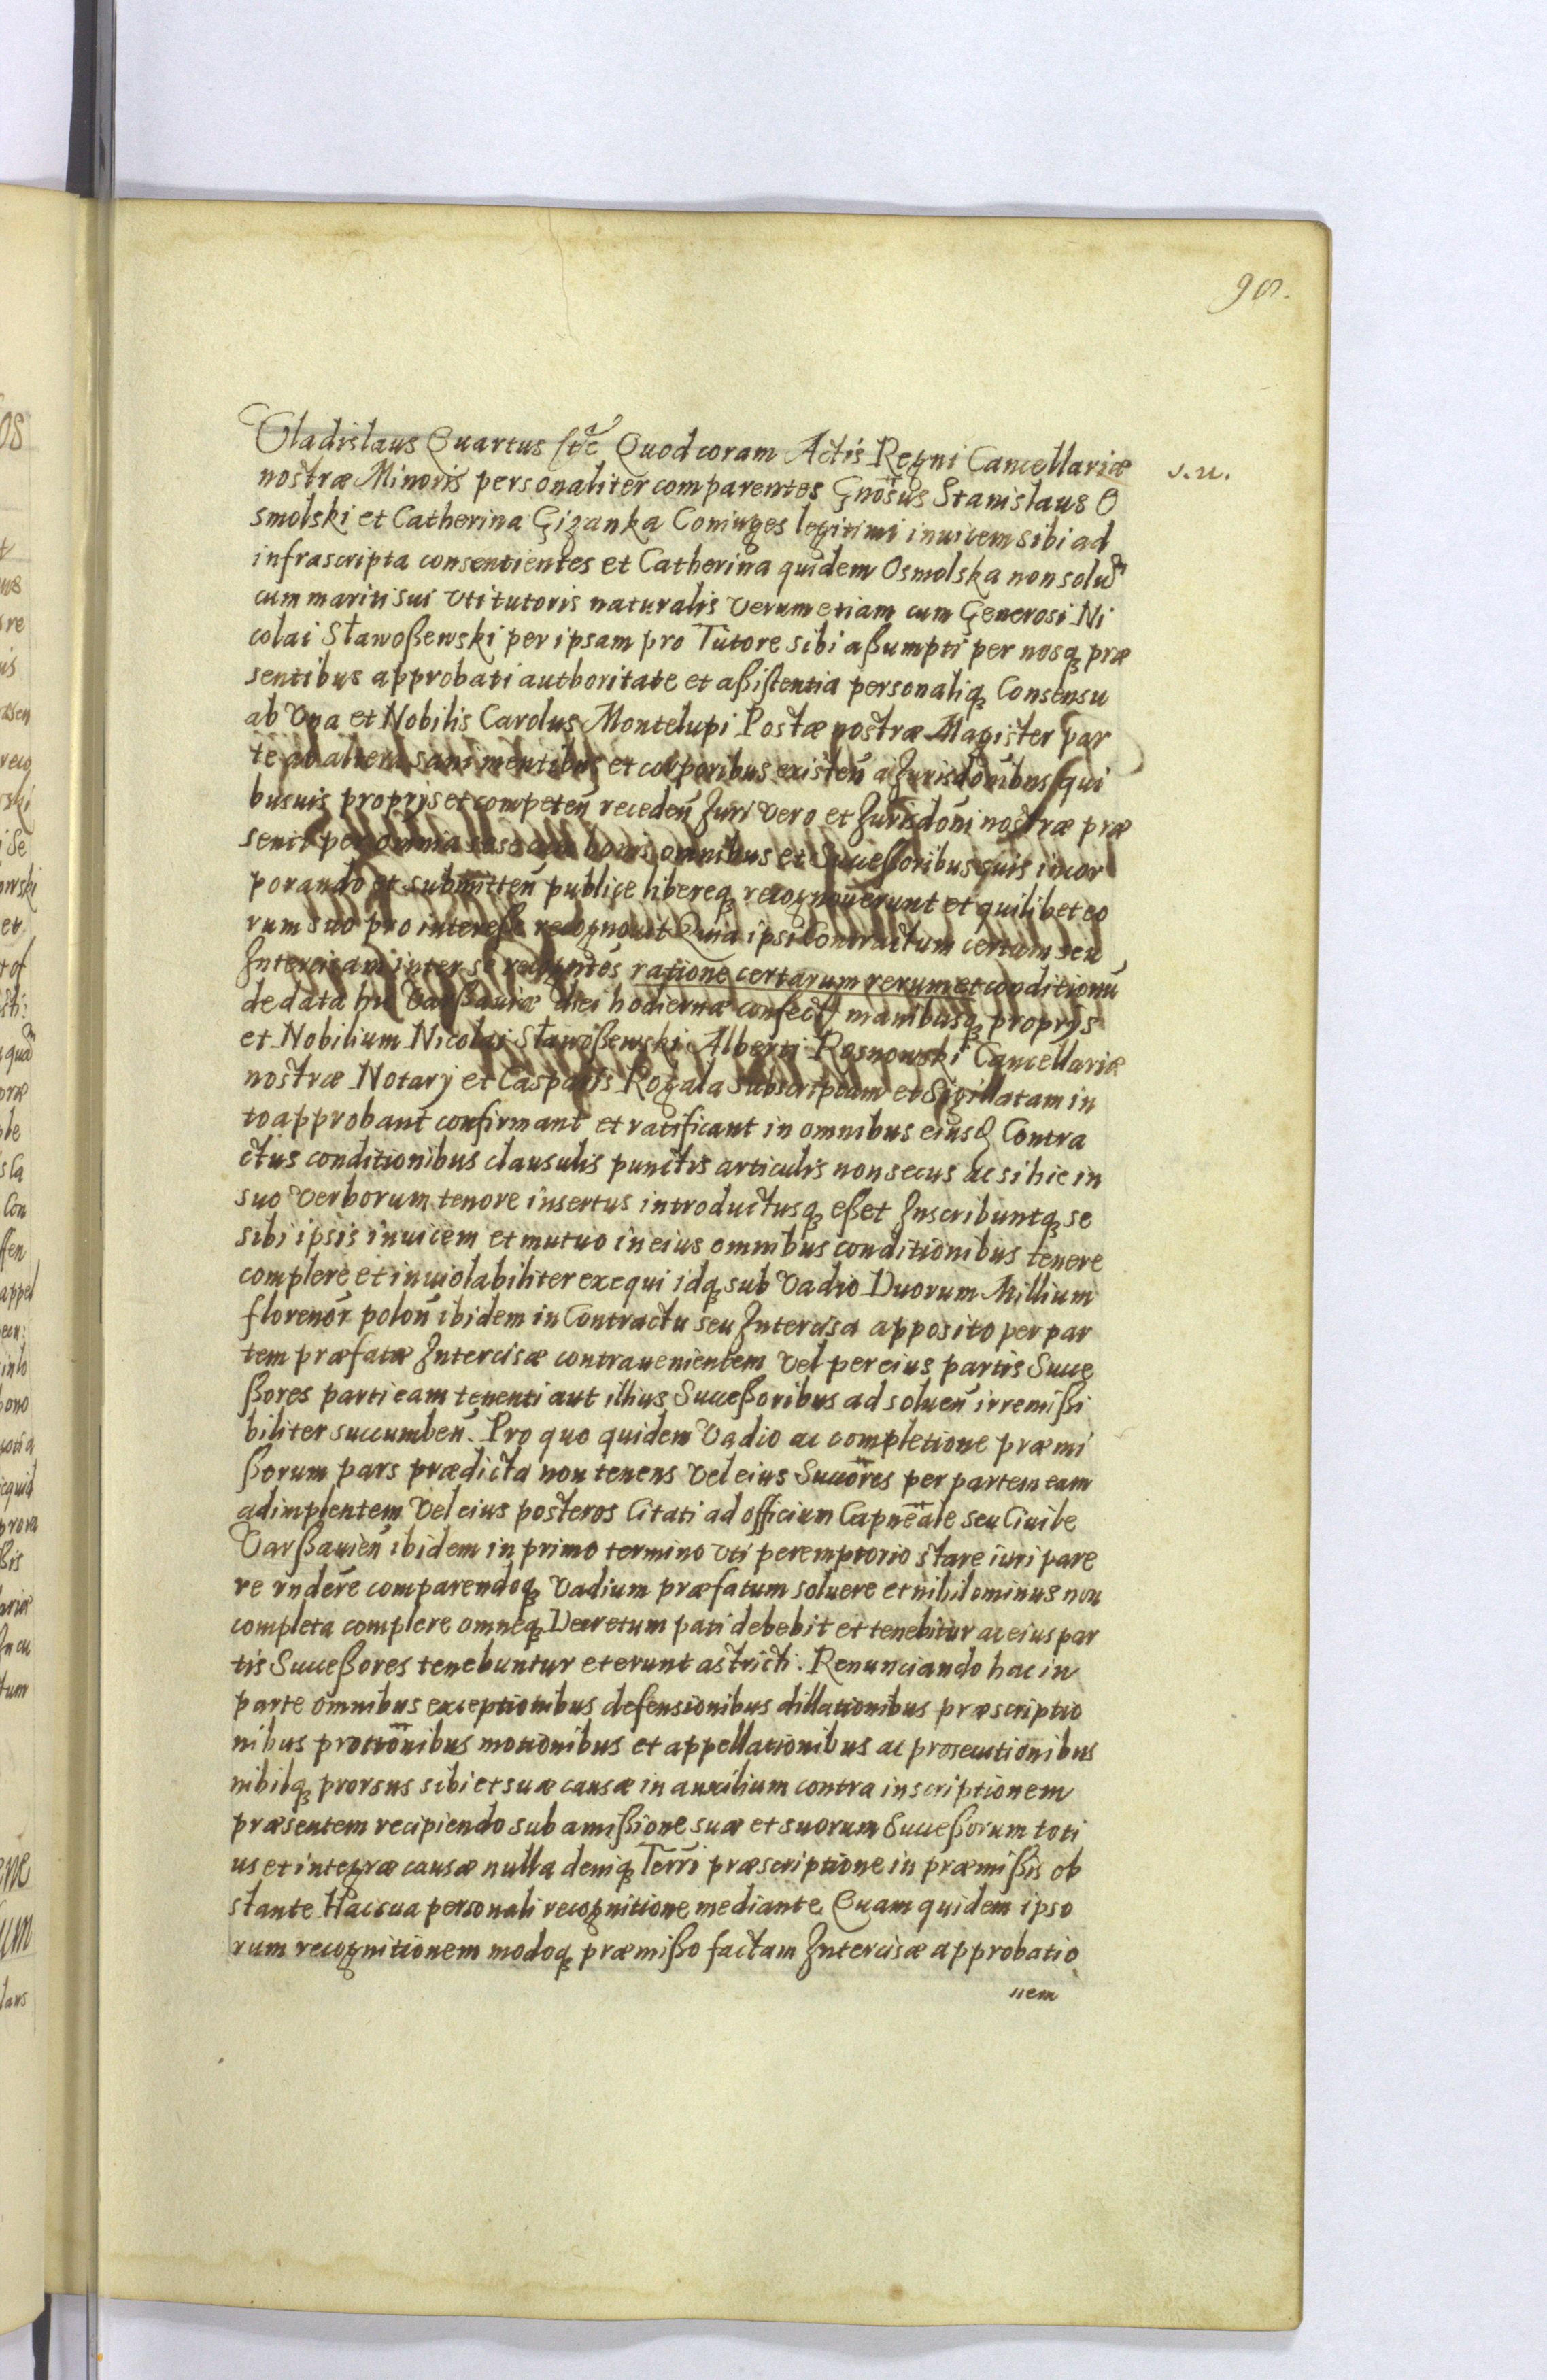 98.
Vladislaus Quartus etc Quod coram Actis Regni Cancellariæ
v. u.
nostræ Minoris personaliter comparentes Gnosus Stanislaus O
smolski et Catherina Gizanka Coniuges legitimi inuicem sibi ad
infrascripta consentientes et Catherina quidem Osmolska non solu
cum mariti sui vti tutoris naturalis verum etiam cum Generosi Ni
colai Stawoßewski per ipsam pro Tutore sibi aßumpti per nosq præ
sentibus approbati authoritate et aßistentia personaliq Consensu
ab Vna et Nobilis Carolus Montelupi Postæ nostræ Magister par
te ab altera sani mentibus et corporibus existen a Jurisdonibus qui
busuis proprijs et competen receden Juri vero et Jurisdoni nostræ præ
senti per omnia sese cum bonis omnibus et Succeßoribus suis incor
porando et submitten publice libereq recognouerunt et quilibet eo
rum suo pro intereße recognouit Quia ipsi Contractum certum seu
Intercisam inter se recogntes ratione certarum rerum et conditionu
de data hic Varßauiæ diei hodiernæ confect manibusq proprijs
et Nobilium Nicolai Stawoßewski Alberti Rosnowski Cancellariæ
nostræ Notarij et Casparis Rogala subscriptam et Sigillatam in
to approbant confirmant et ratificant in omnibus eiusq Contra
ctus conditionibus clausulis punctis articulis non secus ac si hic in
suo verborum tenore insertus introductusq eßet Inscribuntq se
sibi ipsis inuicem et mutuo in eius omnibus conditionibus tenere
complere et inuiolabiliter exequi idq sub Vadio Duorum Millium
florenor polon ibidem in Contractu seu Intercisa apposito per par
tem præfatæ Intercisæ contrauenientem vel per eius partis Succe
ßores parti eam tenenti aut illius Succeßoribus ad soluen irremißi
biliter succumben. Pro quo quidem Vadio ac completione præmi
ßorum pars prædicta non tenens vel eius Succores per partem eam
adimplentem vel eius posteros Citati ad officium Capneale seu Ciuile
Varßauien ibidem in primo termino vti peremptorio stare iuri pare
re rndere comparendoq Vadium præfatum soluere et nihilominus non
completa complere omneq Decretum pati debebit et tenebitur ac eius par
tis Succeßores tenebuntur et erunt astricti. Renunciando hac in
parte omnibus exceptionibus defensionibus dillationibus præscriptio
nibus protionibus motionibus et appellationibus ac prosecutionibus
nihilq prorsus sibi et suæ causæ in auxilium contra inscriptionem
præsentem recipiendo sub amißione suæ et suorum Succeßorum toti
us et integræ causæ nulla deniq Terri præscriptione in præmißis ob
stante Hac sua personali recognitione mediante Quam quidem ipso
rum recognitionem modoq præmißo factam Intercisæ approbatio
nem